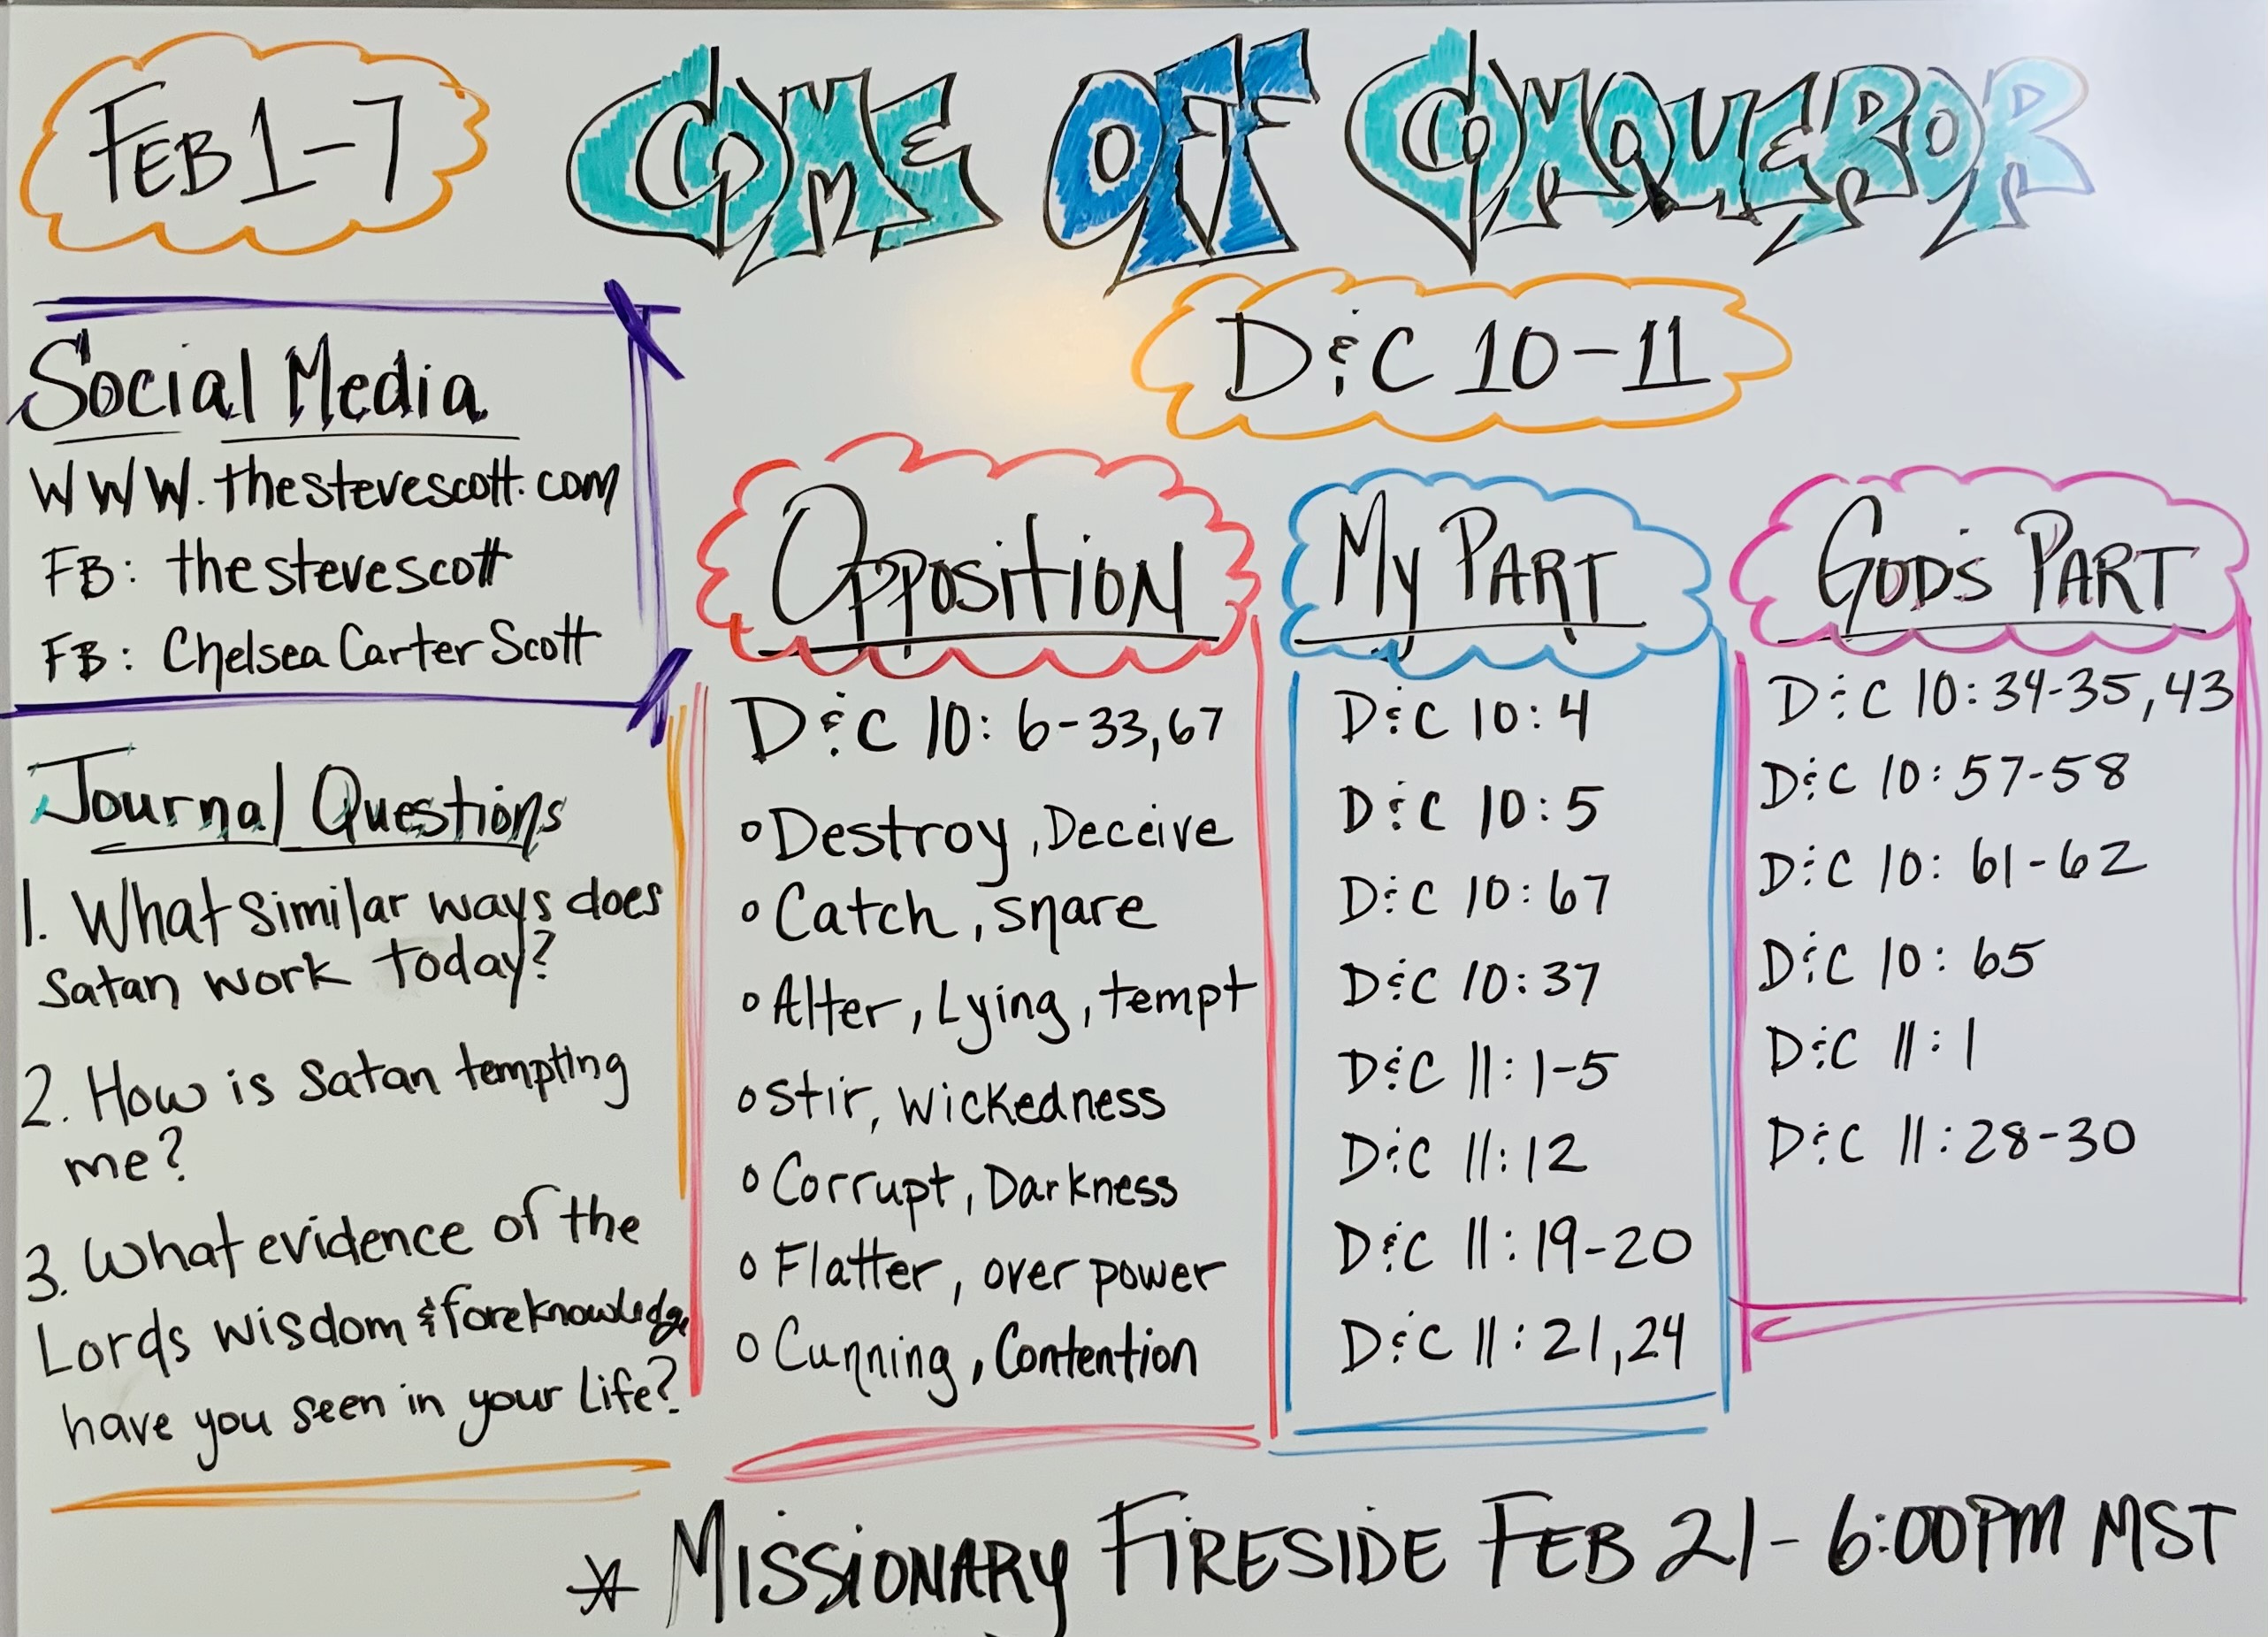 FEB 1-7
COME OFF CONQUEROR
D&C 10-11
Social Media
WWW.thestevescott.com
FB: thestevescott
FB: Chelsea Carter Scott
Journal Questions
1. What similar ways does
satan work today?
2. How is satan tempting
me?
3. What evidence of the
Lords wisdom & foreknowledge
have you seen in your Life?
OPPOSITION
D&C 10: 6-33,67
o Destroy, Deceive
o Catch, snare
o Alter, Lying, tempt
o Stir, wickedness
o Corrupt, Darkness
o Flatter, over power
o Cunning, Contention
My PART
D&C 10:4
D&C 10:5
D&C 10:67
D&C 10:37
D&C 11:1-5
D&C 11:12
D&C 11:19-20
D&C 11:21,24
GOD'S PART
D&C 10:34-35,43
D&C 10:57-58
D&C 10:61-62
D&C 10:65
D&C 11:1
D&C 11:28-30
* MISSIONARY FIRESIDE FEB 21- 6:00PM MST